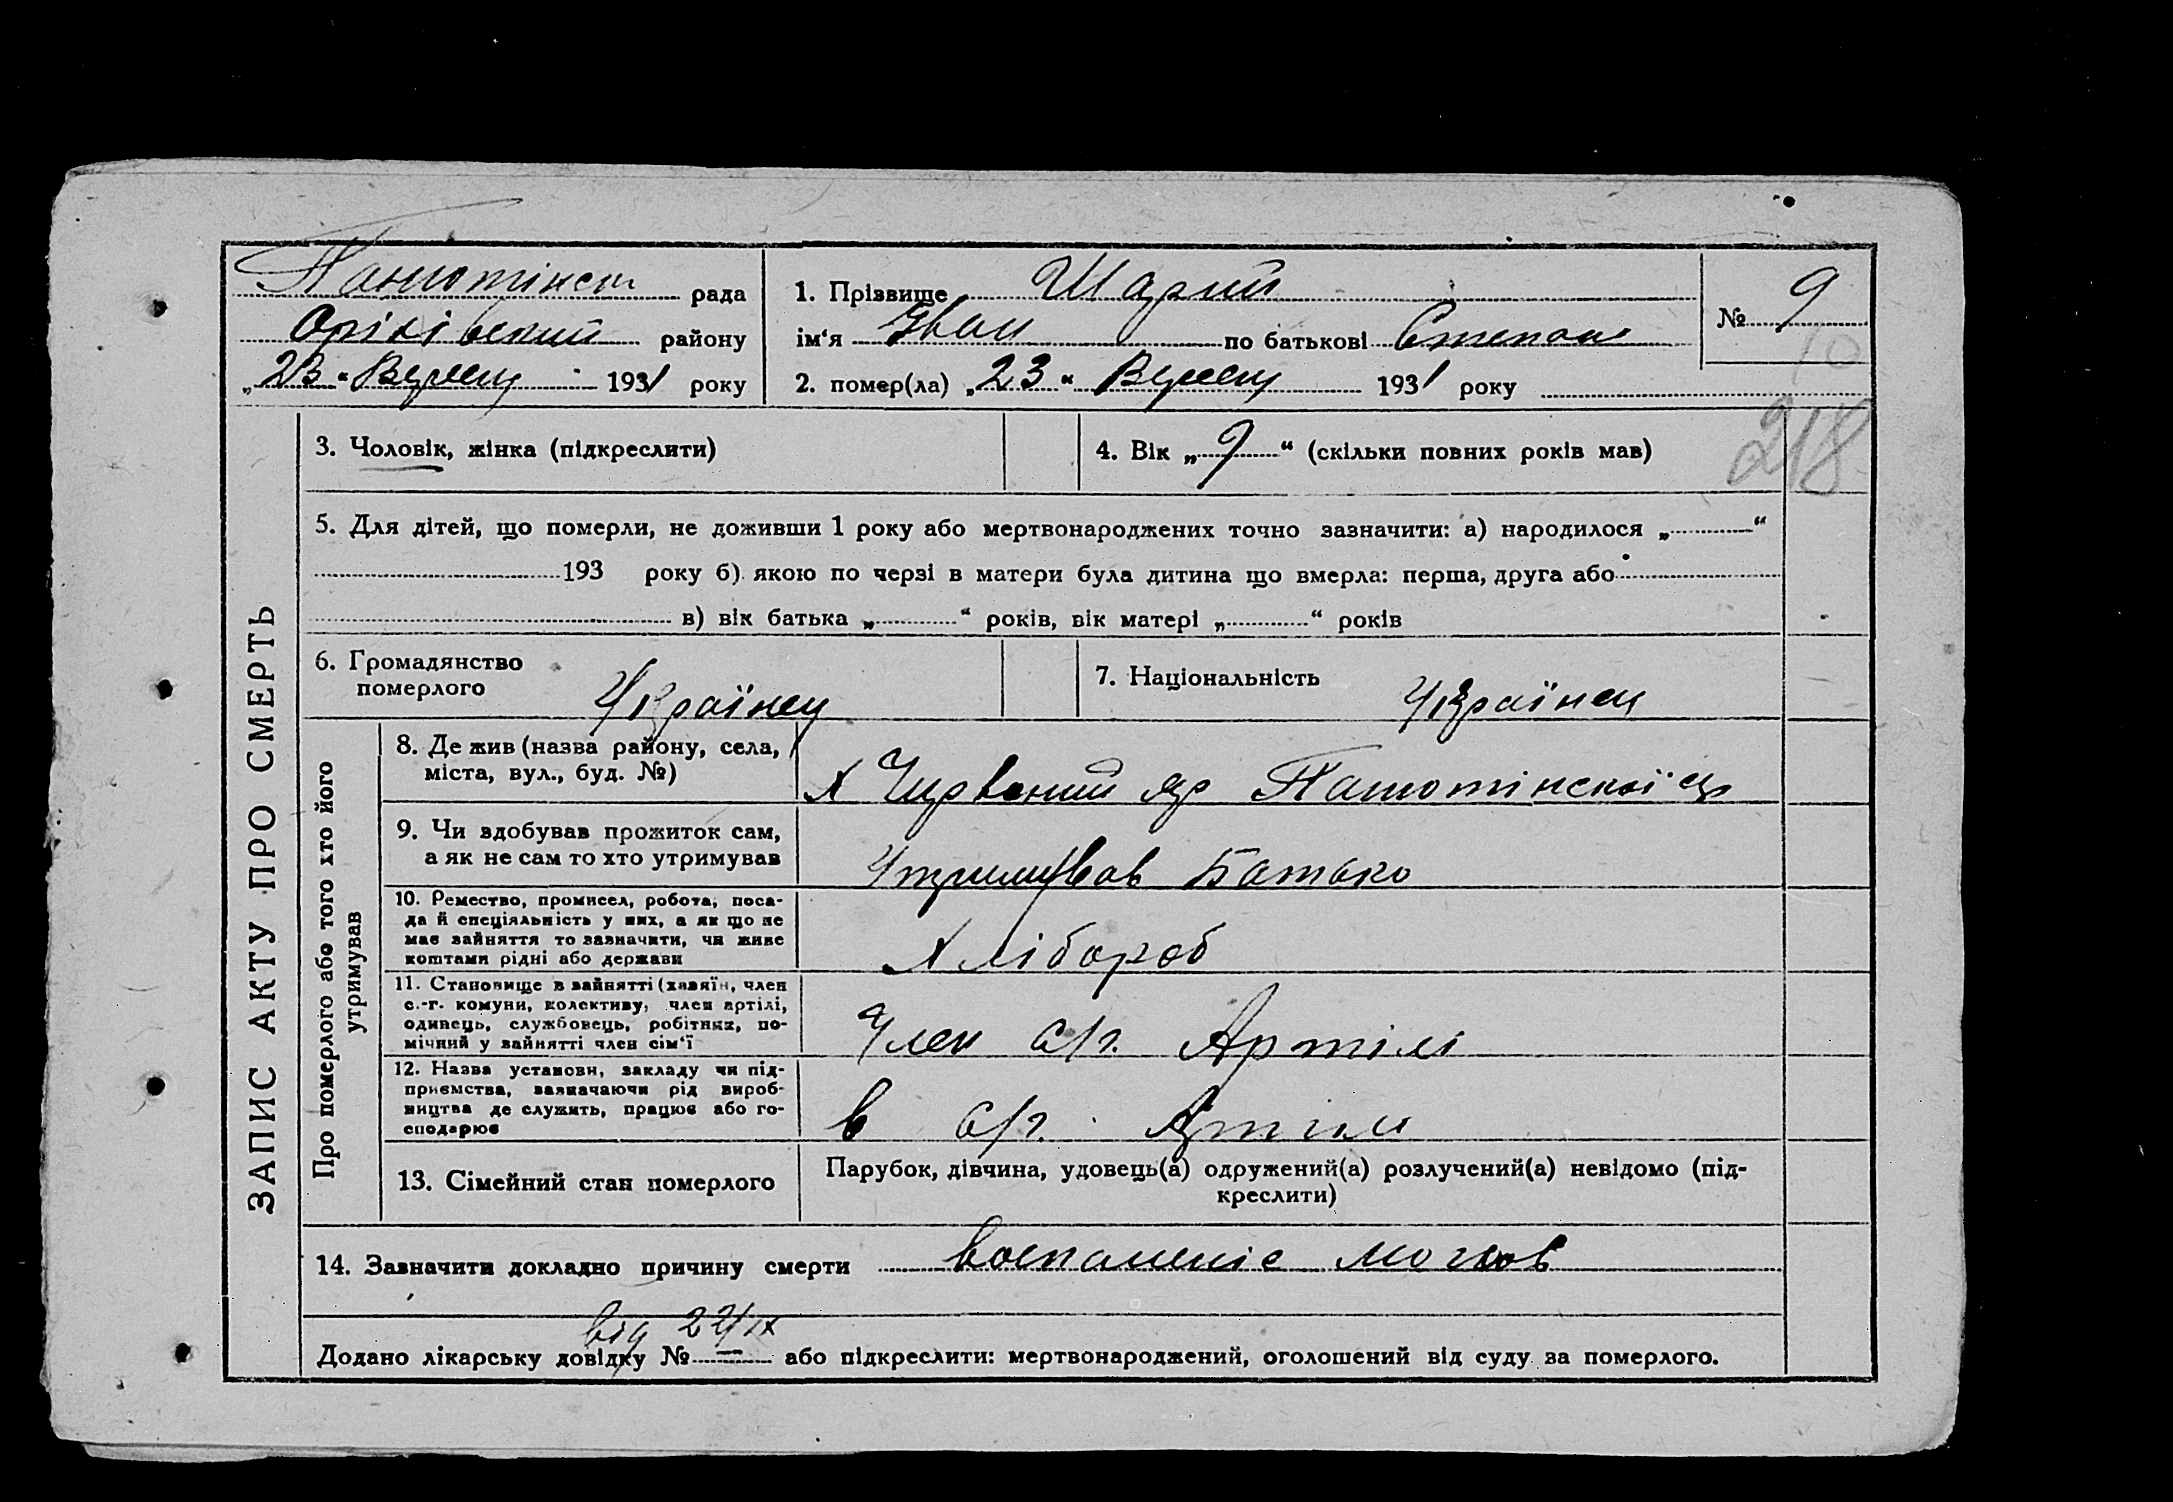 рада
Оріківский району
„23“ Вересня 1931 року
1. Прізвище Шарий
ім‘я Іван по батькові Степан
2. помер(ла) „23“ Вересня 1931 року
№ 9
10
218
ЗАПИС АКТУ ПРО СМЕРТЬ
3. Чоловік, жінка (підкреслити)
4. Вік „9“ (скільки повних років мав)
5. Для дітей, що померли, не доживши 1 року або мертвонароджених точно зазначити: а) народилося „ “
193 року б) якою по черзі в матери була дитина що вмерла: перша, друга або
в) вік батька „ “ років, вік матері „ “ років
6. Громадянство
померлого
Українец
7. Національність Українец
Про померлого або того хто його
утримував
8. Де жив (назва району, села,
міста, вул., буд. №)
х Червоний яр
9. Чи здобував прожиток сам,
а як не сам то хто утримував
Утримував Батько
10. Ремество, промисел, робота, поса-
да й спеціяльність у них, а як що не
має зайняття то зазначити, чи живе
коштами рідні або держави
Хлібороб
11. Становище в зайнятті (хазяїн, член
с.-г. комуни, колективу, член артілі,
одинець, службовець, робітник, по-
мічний у зайнятті член сім‘ї
Член с/г. Артілі
12. Назва установи, закладу чи під-
приємства, зазначаючи рід вироб-
ництва де служить, працює або го-
сподарює
в с/г. Артілі
13. Сімейний стан померлого
Парубок, дівчина, удовець(а) одружений(а) розлучений(а) невідомо (під-
креслити)
14. Зазначити докладно причину смерти воспаленіе мозгов
від 22/ІХ
Додано лікарську довідку № — або підкреслити: мертвонароджений, оголошений від суду за померлого.